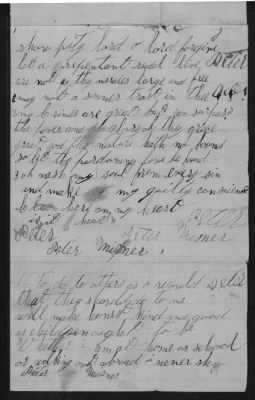 show pity lord o lord forgive
let a repentant rebel live Peter
are not thy mercies large and free
may not a sinner trust in thee
my crimes are great but can surpass
the power and glory of thy grace
great god thy nature hath no bound
so let thy pardoning love be found
oh wash my soul from every sin
and make my guilty conscience
here on my heart
Peter Peter Misner
Peter Misner
to do to others as I would Peter
that they should do to me
will make honest kind and good
as children ought to be
at home at school
or walking out abroad i never
Peter Misner